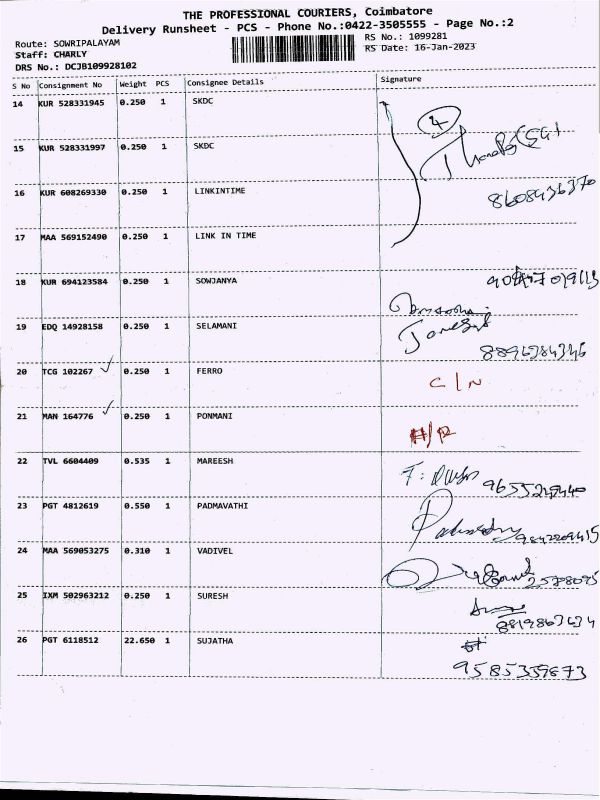 THE PROFESSIONAL COURIERS, Coimbatore
Delivery Runsheet - PCS - Phone No.:0422-3505555 - Page No.:2
Route: SOWRIPALAYAM
Staff: CHARLY
DRS No.: DCJB109928102
RS No.: 1099281
RS Date: 16-Jan-2023
S No Consignment No Weight PCS Consignee Details Signature
14 KUR 528331945 0.250 1 SKDC
4
15 KUR 528331997 0.250 1 SKDC
16 KUR 608269330 0.250 1 LINKINTIME
8608436370
17 MAA 569152490 0.250 1 LINK IN TIME
18 KUR 694123584 0.250 1 SOWJANYA
19 EDQ 14928158 0.250 1 SELAMANI
20 TCG 102267 0.250 1 FERRO
C/N
21 MAN 164776 0.250 1 PONMANI
22 TVL 6604409 0.535 1 MAREESH
23 PGT 4812619 0.550 1 PADMAVATHI
24 MAA 569053275 0.310 1 VADIVEL
25 IXM 502963212 0.250 1 SURESH
26 PGT 6118512 22.650 1 SUJATHA